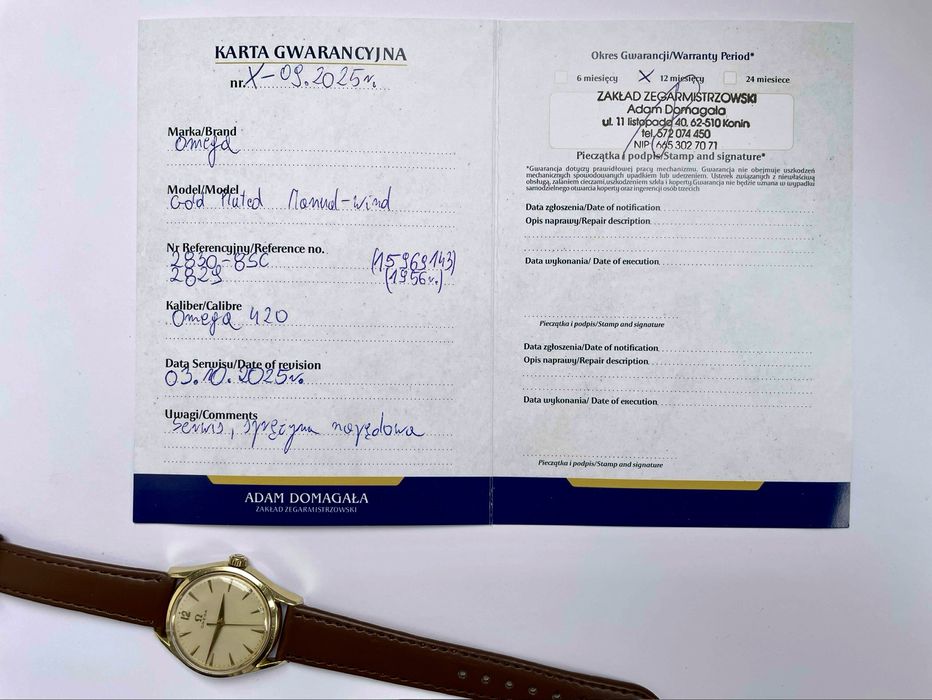 KARTA GWARANCYJNA
nr. X-09.2025r.
Marka/Brand
Omega
Model/Model
Gold Plated Manual-wind
Nr Referencyjny/Reference no.
2830-8SC (15969143)
2829 (1956r.)
Kaliber/Calibre
Omega 420
Data Serwisu/Date of revision
03.10.2025r.
Uwagi/Comments
Serwis, sprężyna napędowa
ADAM DOMAGAŁA
ZAKŁAD ZEGARMISTRZOWSKI
Okres Gwarancji/Warranty Period*
6 miesięcy X 12 miesięcy 24 miesiece
ZAKŁAD ZEGARMISTRZOWSKI
Adam Domagała
ul. 11 listopada 40, 62-510 Konin
tel. 572 074 450
NIP 665 302 70 71
Pieczątka i podpis/Stamp and signature*
*Gwarancja dotyczy prawidłowej pracy mechanizmu. Gwarancja nie obejmuje uszkodzeń
mechanicznych spowodowanych upadkiem lub uderzeniem. Usterek związanych z niewłaściwą
obsługą, zalaniem cieczami, uszkodzeniem szkła i koperty Gwarancja nie będzie uznana w wypadku
samodzielnego otwarcia koperty oraz ingerencji osób trzecich
Data zgłoszenia/Date of notification
Opis naprawy/Repair description
Data wykonania/ Date of execution
Pieczątka i podpis/Stamp and signature
Data zgłoszenia/Date of notification
Opis naprawy/Repair description
Data wykonania/ Date of execution
Pieczątka i podpis/Stamp and signature
12
Ω
OMEGA